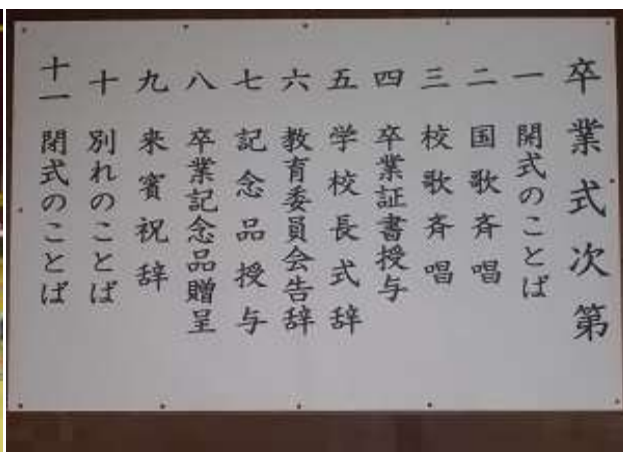 卒業式次第
一 開式のことば
二 国歌斉唱
三 校歌斉唱
四 卒業証書授与
五 学校長式辞
六 教育委員会告辞
七 記念品授与
八 卒業記念品贈呈
九 来賓祝辞
十 別れのことば
十一 閉式のことば